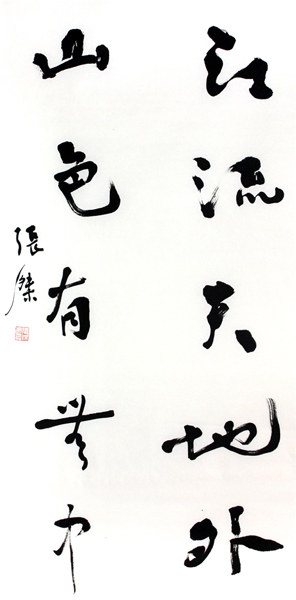 江流天地外
山色有無中
張傑